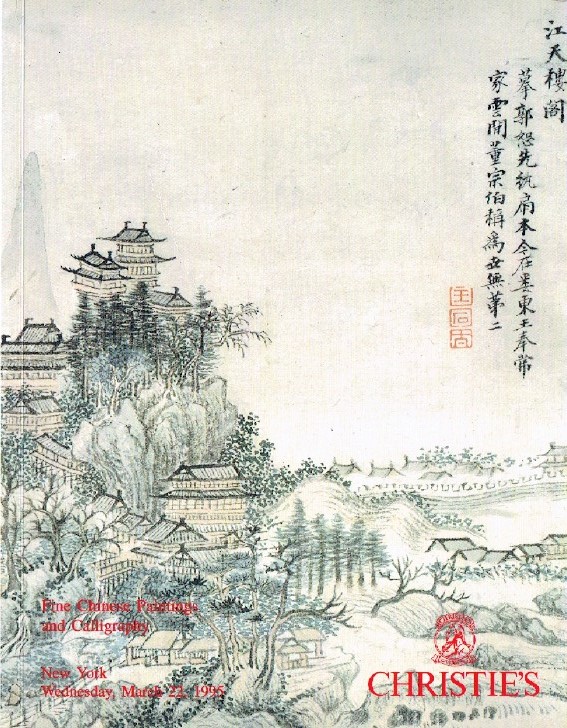 江天樓閣
摹郭恕先紈扇本今在婁東王奉常
家雲間董宗伯稱為世無第二
Fine Chinese Paintings
and Calligraphy
New York
Wednesday, March 22, 1995
CHRISTIE'S